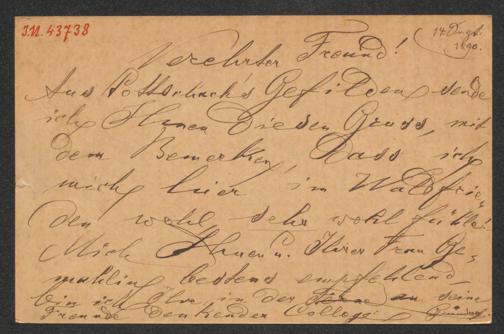 J.N. 43738
14. Aug.
1890.
Verehrter Freund!
Aus Pottschach's Gefilden sende
ich Ihnen diesen Gruss, mit
dem Bemerken, dass ich
mich hier im Waldfrie-
den wohl sehr wohl fühle.
Mich Ihnen u. Ihrer Frau Ge-
mahlin bestens empfehlend
bin ich Ihr, in der Ferne an seine
Freunde denkender College